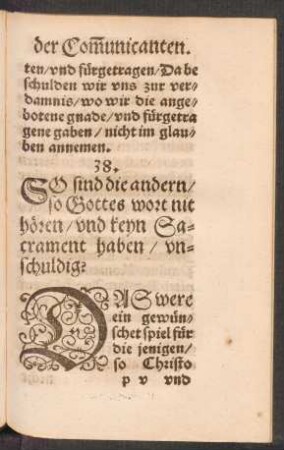 der Com̃unicanten.
ten/vnd fürgetragen/Da be
schulden wir vns zur ver⸗
damnis/wo wir die ange⸗
botene gnade/vnd fürgetra
gene gaben/nicht im glau⸗
ben annemen.
38.
SO sind die andern/
so Gottes wort nit
hören/vnd keyn Sa⸗
crament haben/vn⸗
schuldig?
DAS were
ein gewün⸗
schet spiel für
die jenigen/
so Christo
p v vnd